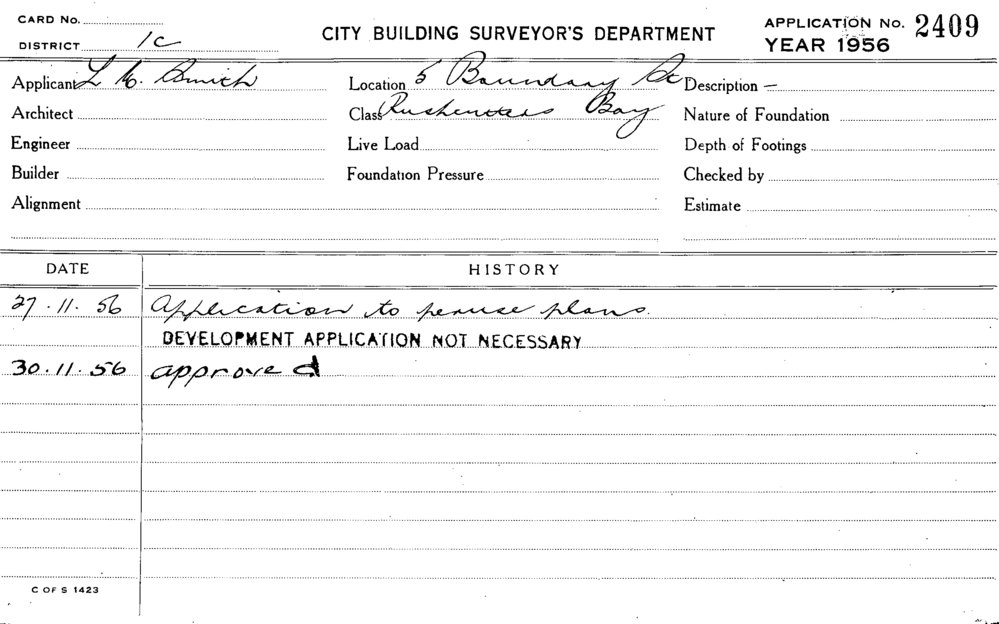 CARD No.
DISTRICT 1C
CITY BUILDING SURVEYOR'S DEPARTMENT
APPLICATION No. 2409
YEAR 1956
Applicant L M. Smith
Location 5 Boundary St
Description —
Architect
Class Rushcutters Bay
Nature of Foundation
Engineer
Live Load
Depth of Footings
Builder
Foundation Pressure
Checked by
Alignment
Estimate
DATE HISTORY
27.11.56 Application to peruse plans.
DEVELOPMENT APPLICATION NOT NECESSARY
30.11.56 approved
C OF S 1423